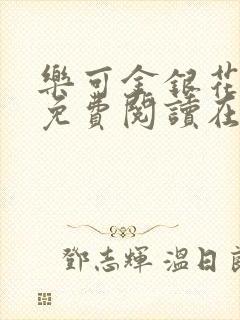 樂可金銀花
免費閱讀在
鄧志輝 溫日良